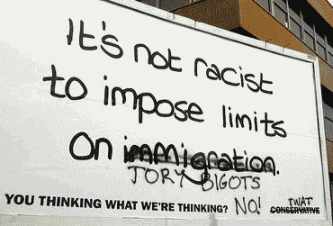 It's not racist
to impose limits
on immigration.
TORY BIGOTS
YOU THINKING WHAT WE'RE THINKING? NO!
TWAT
CONSERVATIVE